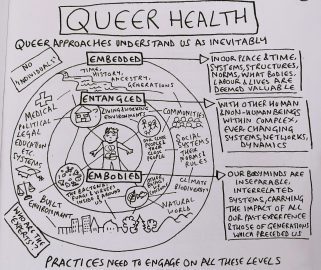 QUEER HEALTH
QUEER APPROACHES UNDERSTAND US AS INEVITABLY
NO "INDIVIDUALS"
EMBEDDED
TIME, HISTORY, ANCESTRY, GENERATIONS
IN OUR PLACE & TIME,
SYSTEMS, STRUCTURES,
NORMS, WHAT BODIES,
LABOUR & LIVES ARE
DEEMED VALUABLE
ENTANGLED
LIVING & WORKING
ENVIRONMENTS
COMMUNITIES
MEDICAL
POLITICAL
LEGAL
EDUCATION
ETC SYSTEMS
CLOSE PEOPLE
SOCIAL
SYSTEMS
THEIR
NORMS &
RULES
WITH OTHER HUMAN
& NON-HUMAN BEINGS
WITHIN COMPLEX,
EVER CHANGING
SYSTEMS, NETWORKS,
DYNAMICS
EMBODIED
BACTERIA
FUNGI & MORE
INSIDE & AROUND
CLIMATE
BIODIVERSITY
NATURAL
WORLD
BUILT
ENVIRONMENT
OUR BODYMINDS ARE
INSEPARABLE,
INTERRELATED
SYSTEMS, CARRYING
THE IMPACT OF ALL
OUR PAST EXPERIENCE
& THOSE OF GENERATIONS
WHICH PRECEDED US
PRACTICES NEED TO ENGAGE ON ALL THESE LEVELS